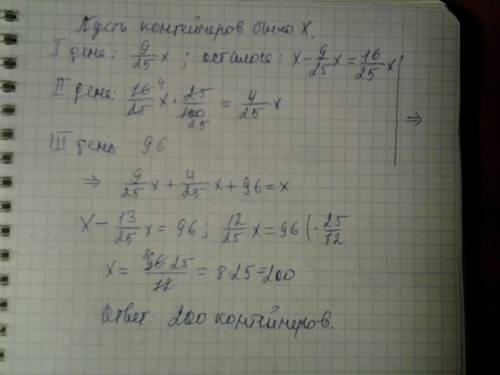 Пусть контейнеров было X.
I день: 9/25 x ; осталось: x - 9/25 x = 16/25 x
II день: 16/25 x · 25/100 = 4/25 x ⇒
III день 96
⇒ 9/25 x + 4/25 x + 96 = x
X - 13/25 x = 96 ; 12/25 x = 96 | · 25/12
X = 96·25/12 = 8·25 = 200
Ответ: 200 контейнеров.